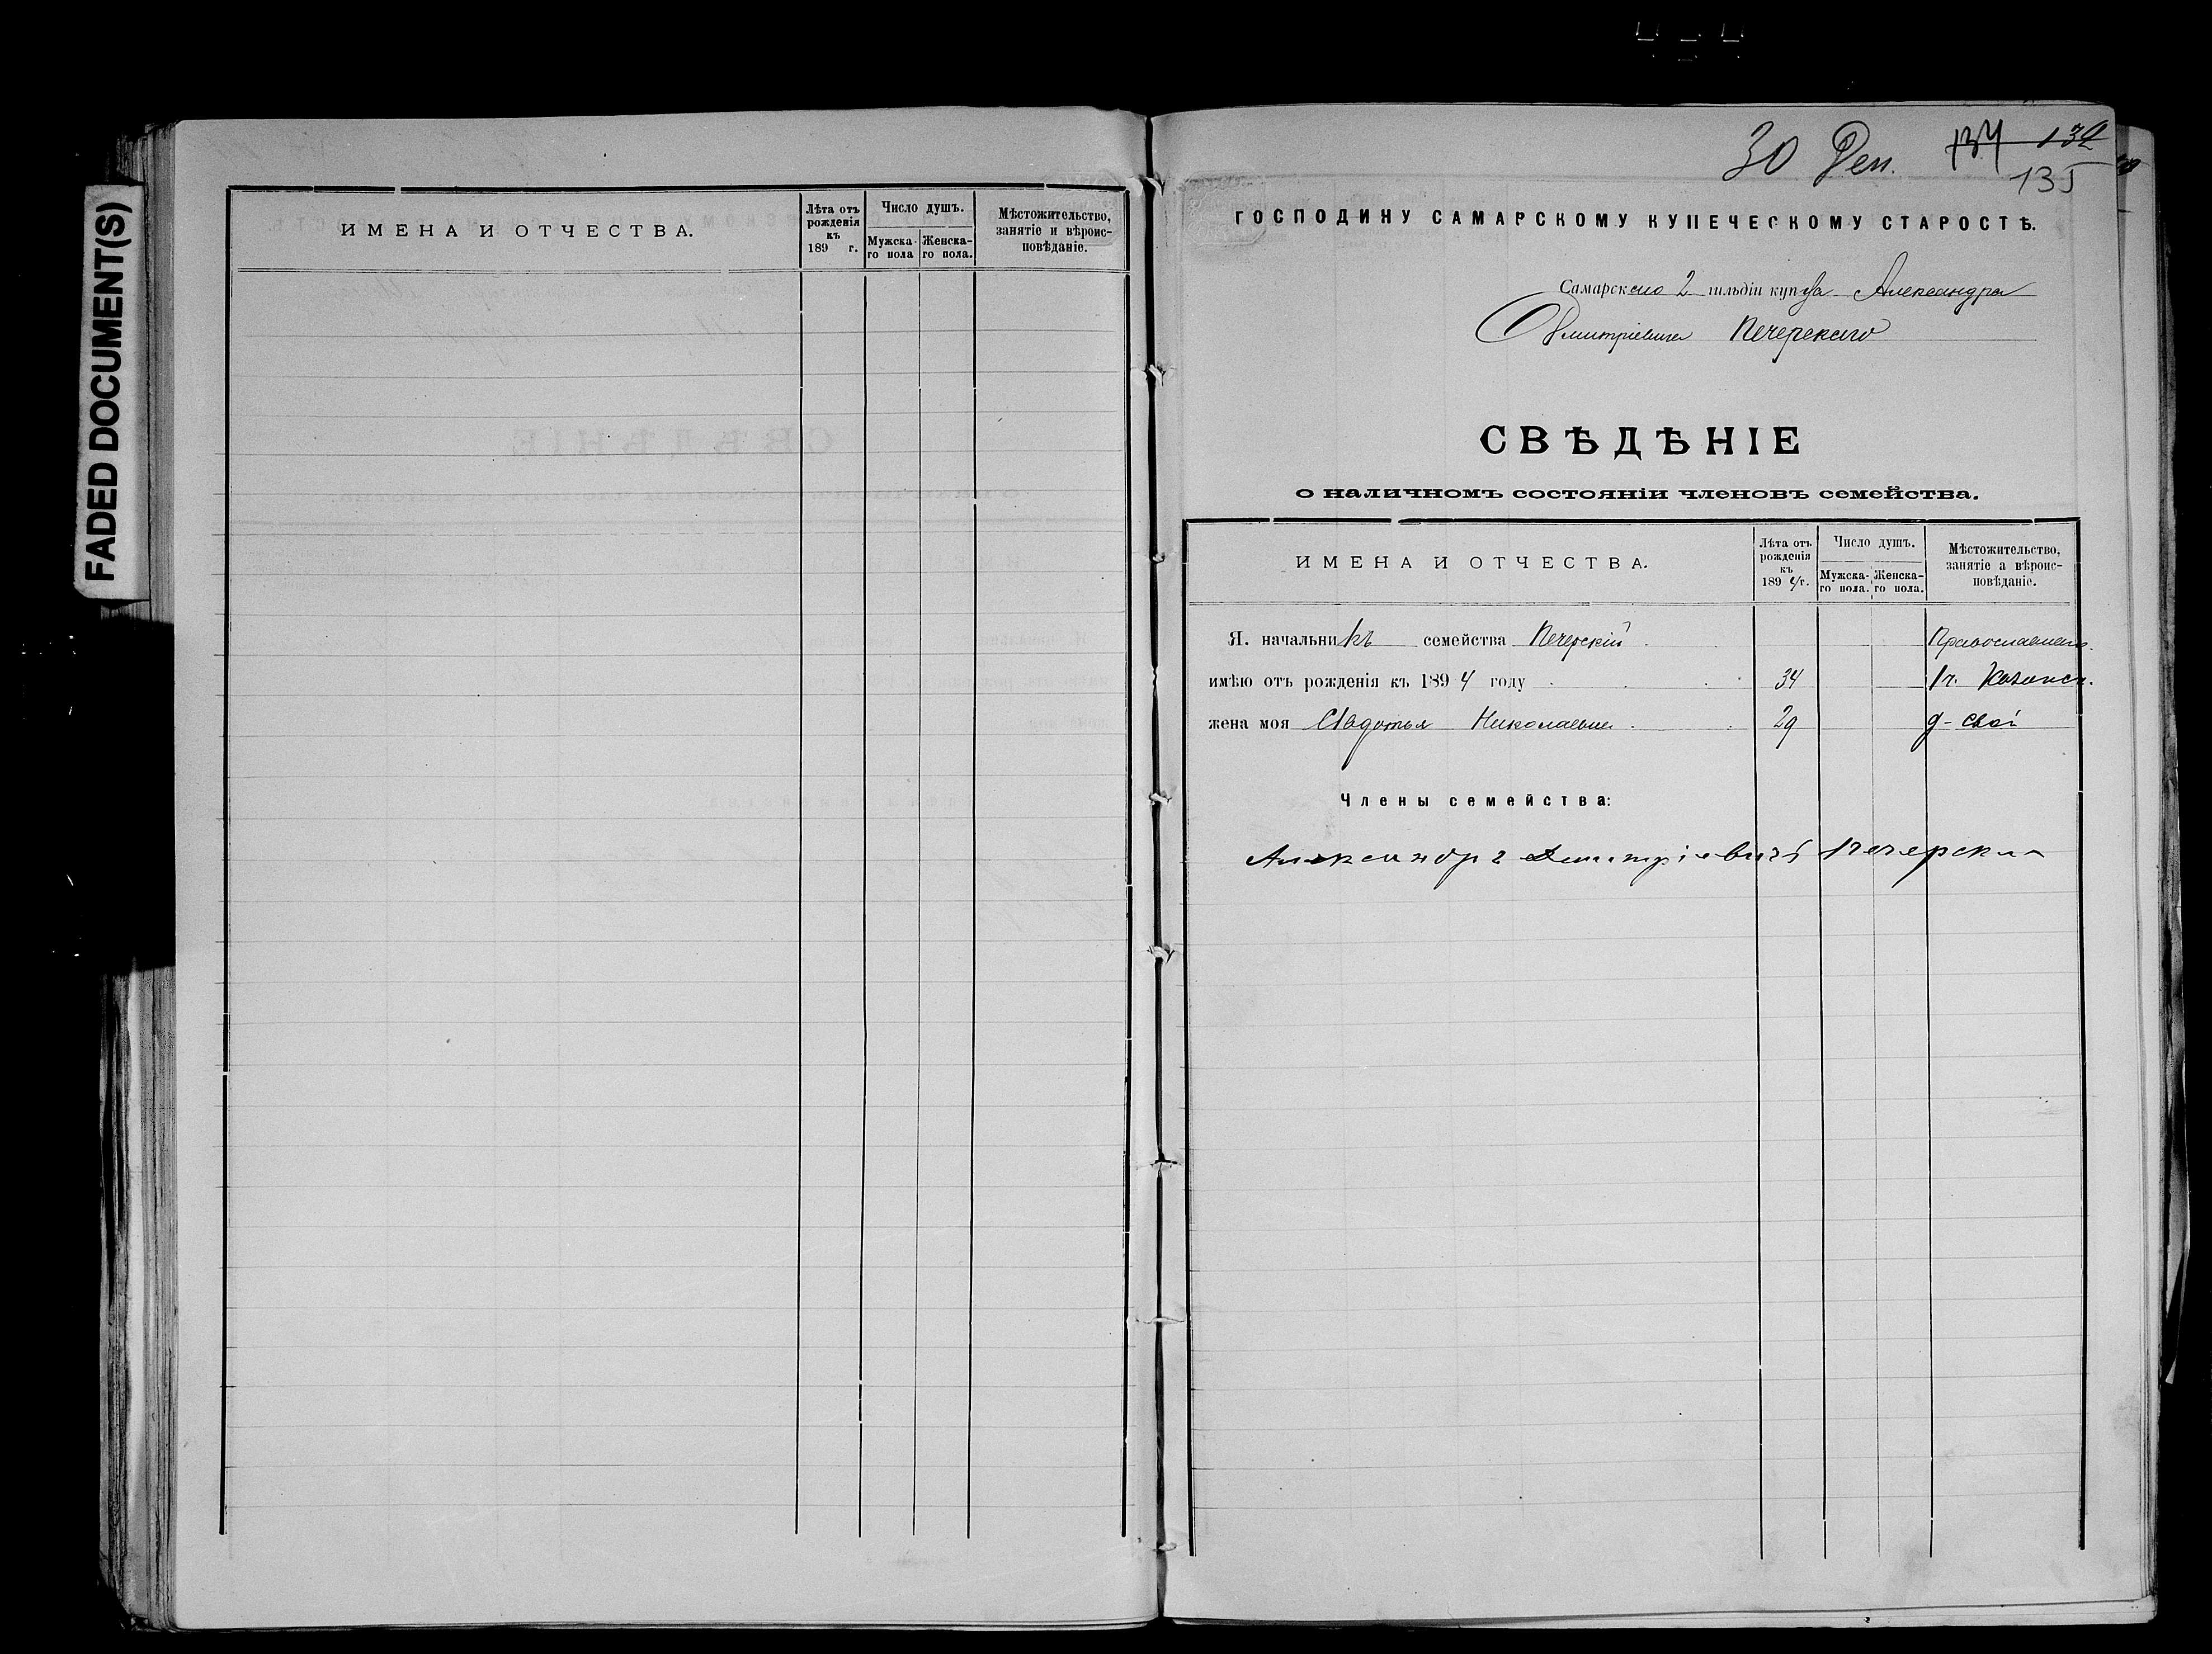 FADED DOCUMENT(S)
ИМЕНА И ОТЧЕСТВА.
Лѣта отъ рожденія къ 189 г.
Число душъ.
Мужска-го пола
Женска-го пола.
Мѣстожительство, занятіе и вѣроис-повѣданіе.
30 Дек. 134 132
135
ГОСПОДИНУ САМАРСКОМУ КУПЕЧЕСКОМУ СТАРОСТѢ.
Самарскаго 2 гильдіи купца Александра
Дмитріевича Печерскаго
СВѢДѢНІЕ
о наличномъ состояніи членовъ семейства.
ИМЕНА И ОТЧЕСТВА.
Лѣта отъ рожденія къ 1894 г.
Число душъ.
Мужска-го пола.
Женска-го пола.
Мѣстожительство, занятіе а вѣроис-повѣданіе.
Я. начальникъ семейства Печерскій
имѣю отъ рожденія къ 1894 году 34 1ч. Казанск.
жена моя Авдотья Николаевна 29 д- свой
Члены семейства:
Александръ Дмитріевичъ Печерски